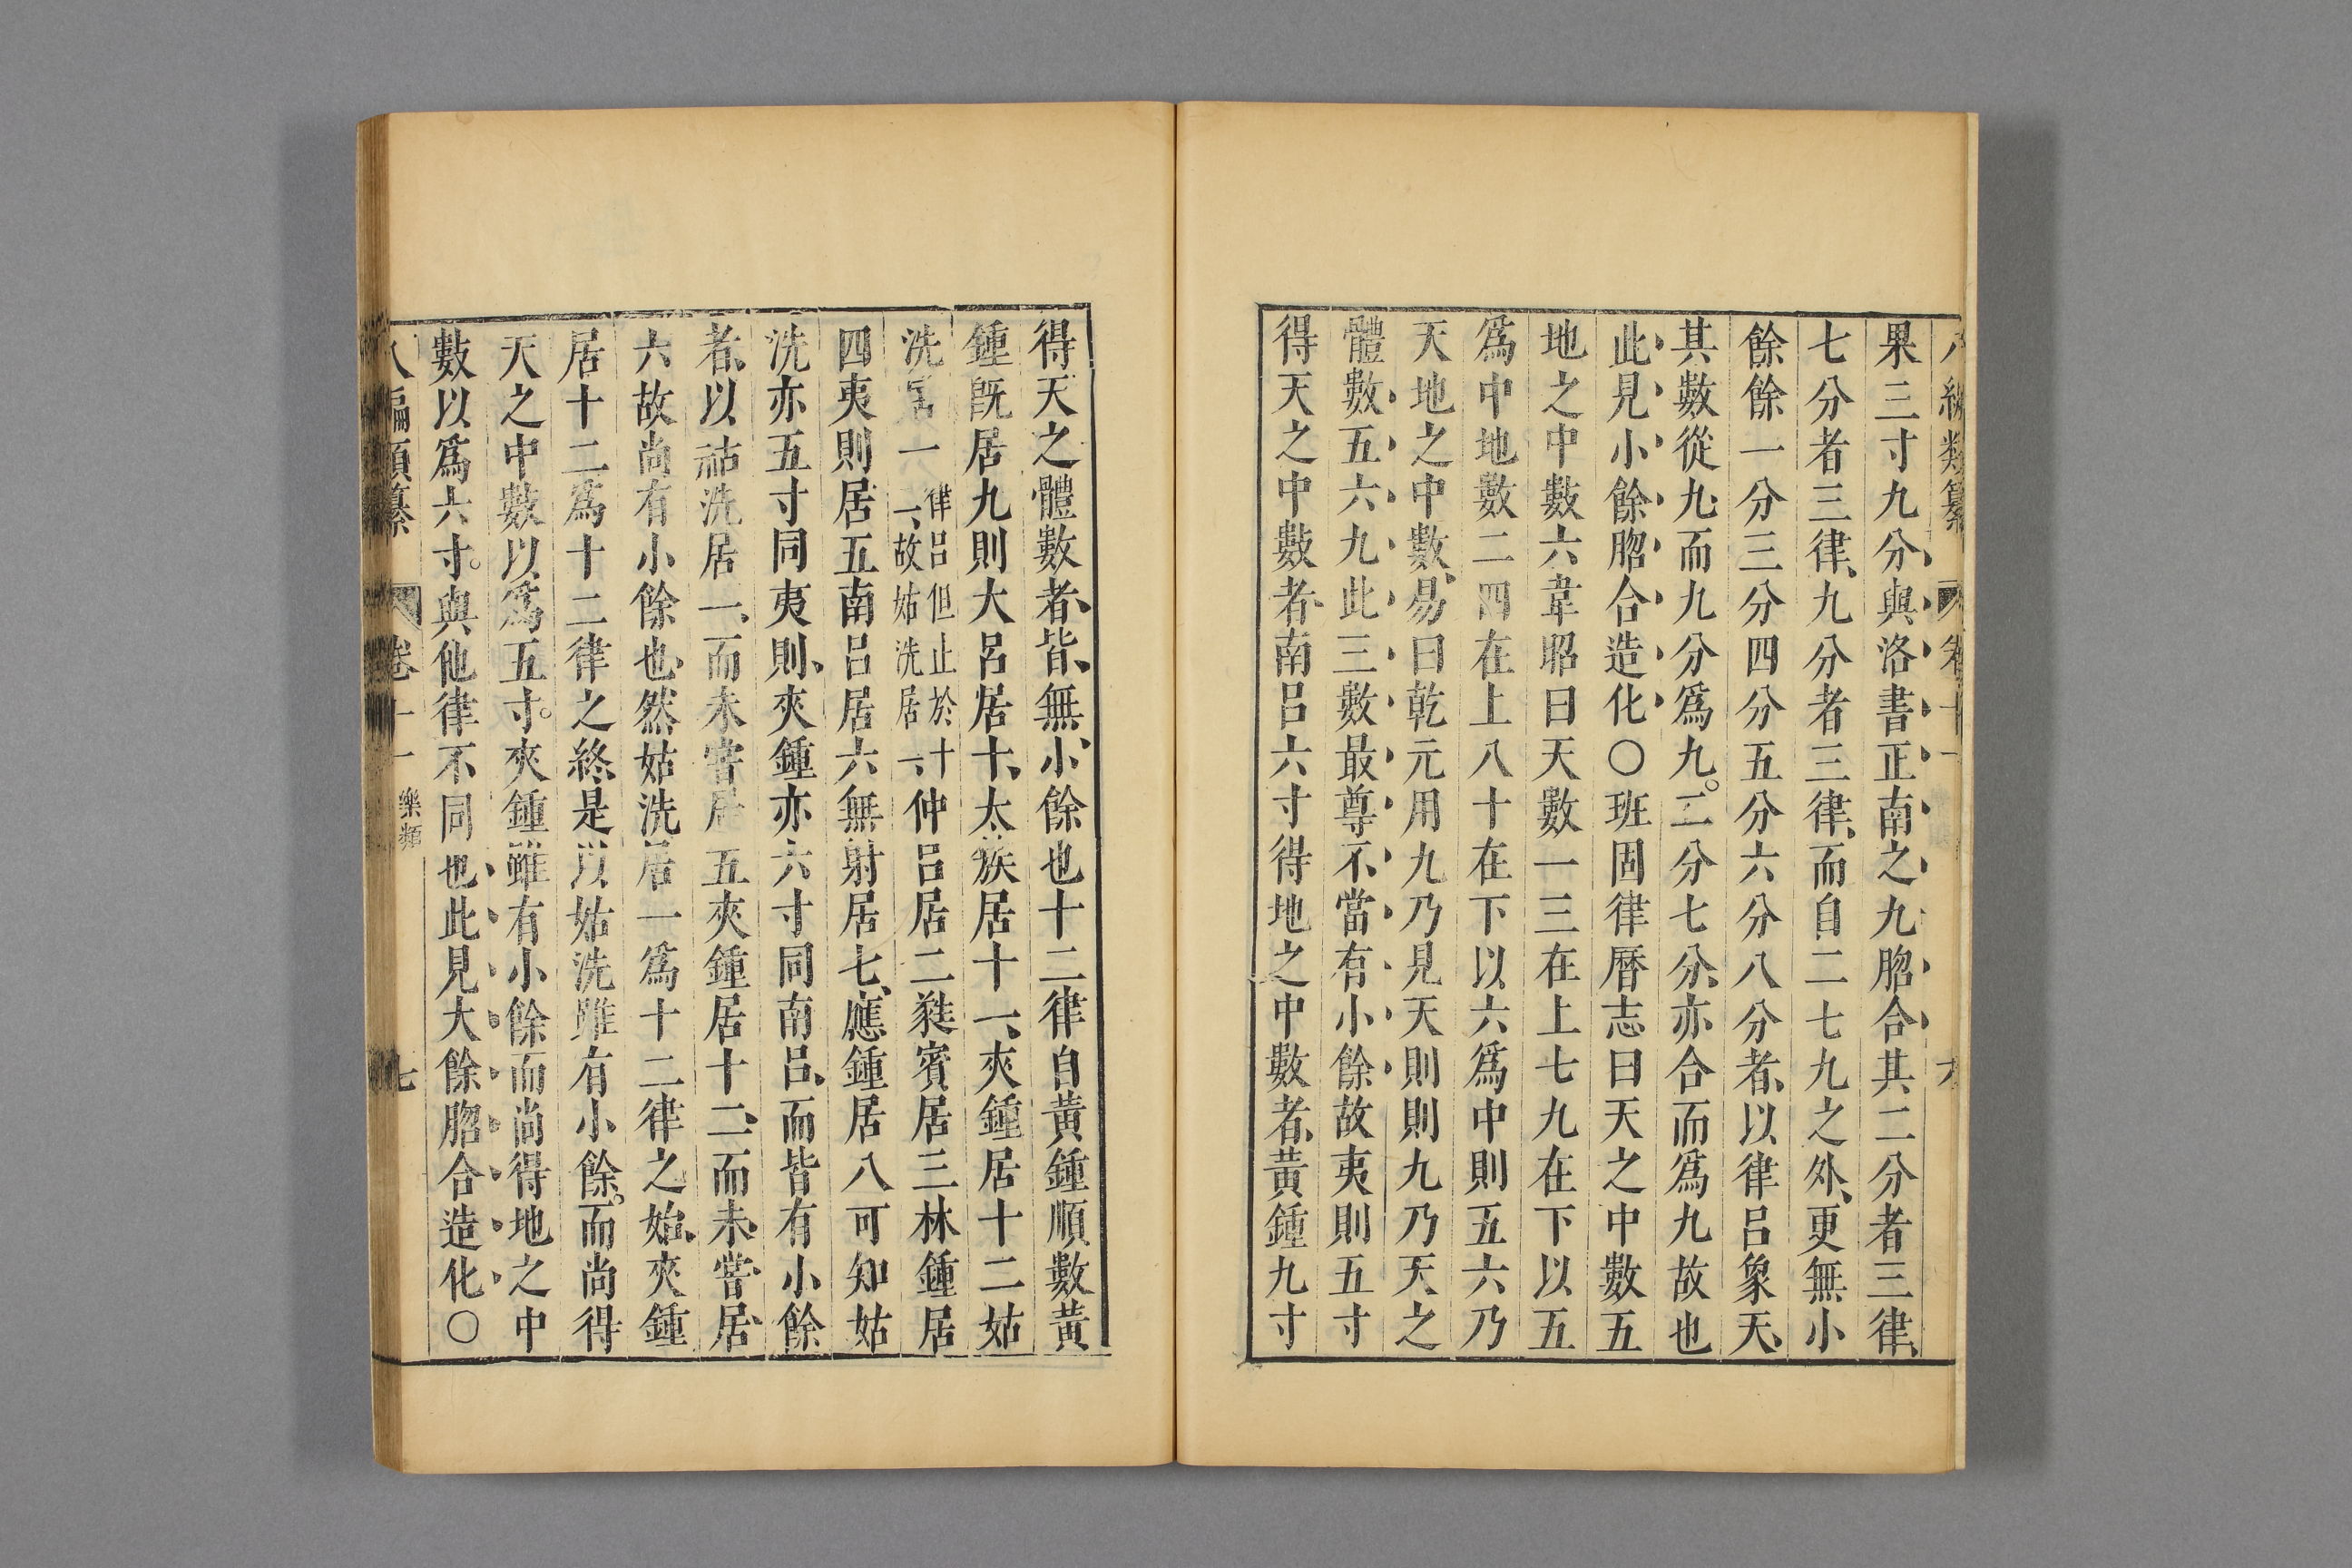 果三寸九分與洛書正南之九脗合其二分者三律
七分者三律九分者三律而自二七九之外更無小
餘餘一分三分四分五分六分八分者以律呂象天
其數從九而九分爲九二分七分亦合而爲九故也
此見小餘脗合造化〇班固律曆志曰天之中數五
地之中數六韋昭曰天數一三在上七九在下以五
爲中地數二四在上八十在下以六爲中則五六乃
天地之中數易曰乾元用九乃見天則則九乃天之
體數五六九此三數最尊不當有小餘故夷則五寸
得天之中數者南呂六寸得地之中數者黃鍾九寸
得天之體數者皆無小餘也十二律自黃鍾順數黃
鍾旣居九則大呂居十太簇居十一夾鍾居十二姑
洗居一律呂但止於十二故姑洗居一仲呂居二蕤賓居三林鍾居
四夷則居五南呂居六無射居七應鍾居八可知姑
洗亦五寸同夷則夾鍾亦六寸同南呂而皆有小餘
者以祜洗居一而未嘗居五夾鍾居十二而未嘗居
六故尙有小餘也然姑洗居一爲十二律之始夾鍾
居十二爲十二律之終是以姑洗雖有小餘而尙得
天之中數以爲五寸夾鍾雖有小餘而尙得地之中
數以爲六寸與他律不同也此見大餘脗合造化〇
八編類纂 卷十一 樂類 七